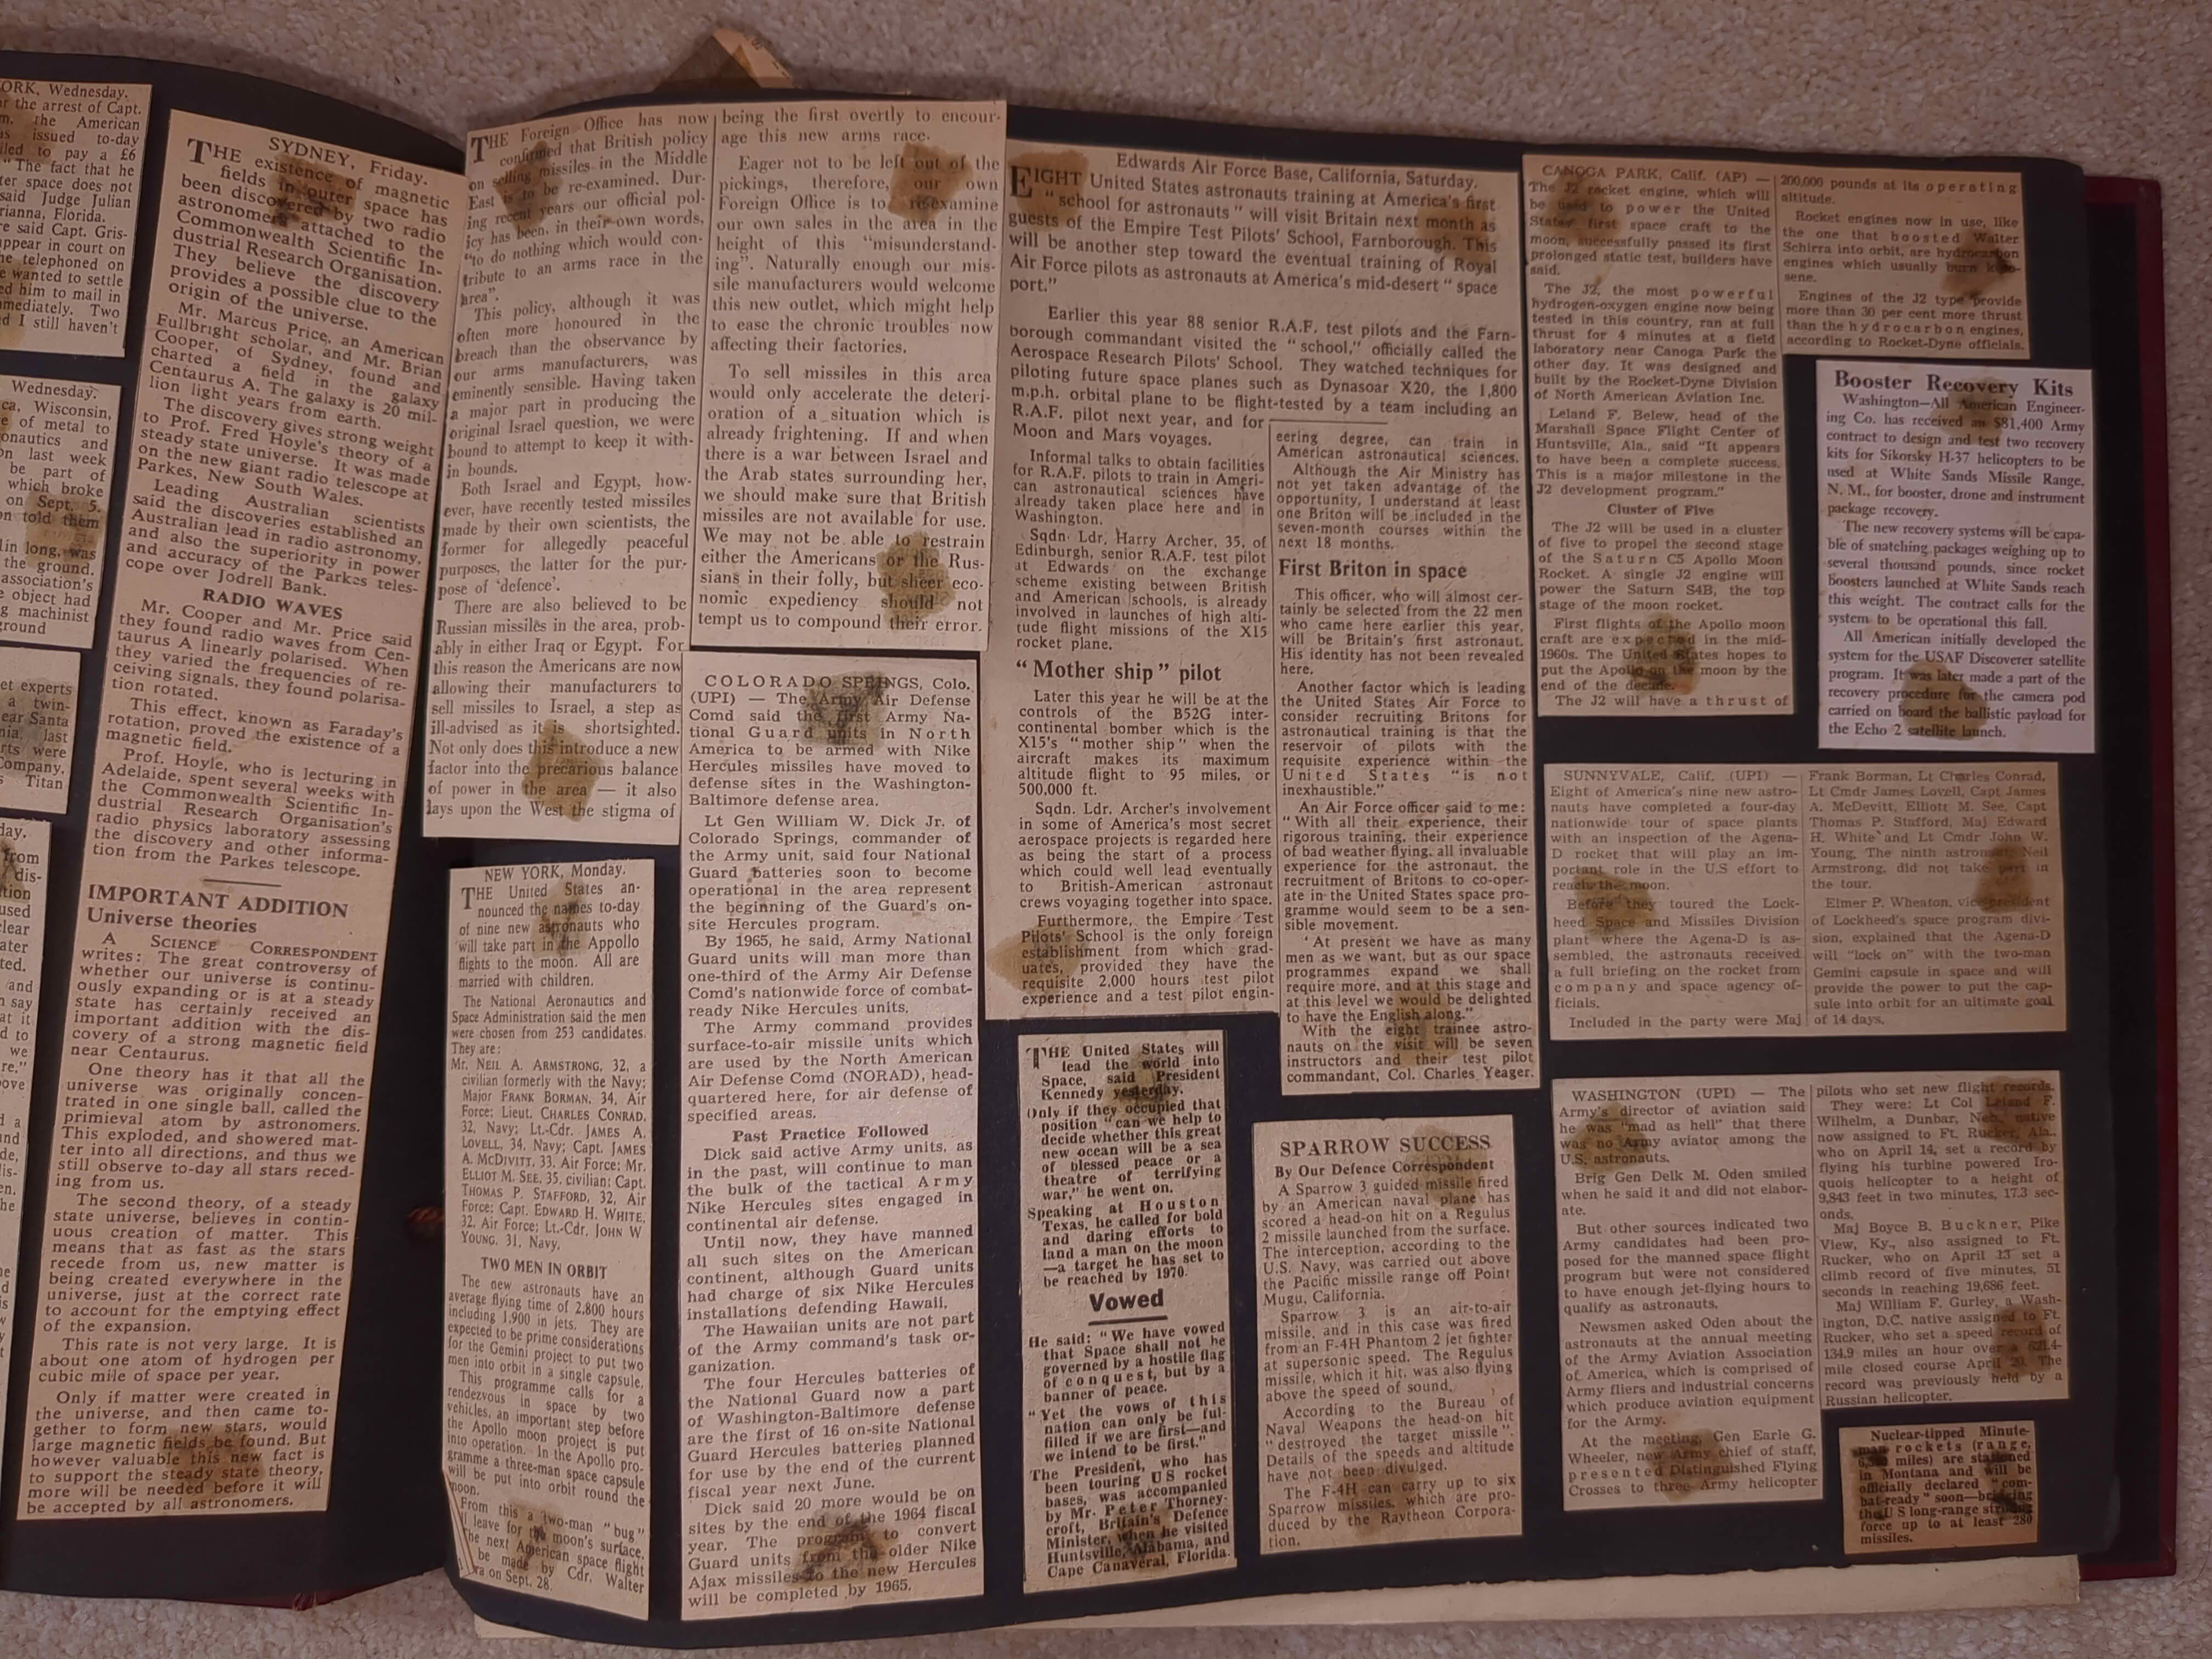 ORK, Wednesday.
r the arrest of Capt.
m, the American
as issued to-day
iled to pay a £6
"The fact that he
ter space does not
said Judge Julian
rianna, Florida.
e said Capt. Gris-
appear in court on
he telephoned on
e wanted to settle
ed him to mail in
mmediately. Two
nd I still haven't
Wednesday.
ca, Wisconsin,
e of metal to
onautics and
on last week
be part of
which broke
on Sept. 5.
on told them
lin long, was
the ground.
association's
e object had
g machinist
ground
et experts
a twin-
ear Santa
nia, last
rts were
Company,
s Titan
SYDNEY, Friday.
THE existence of magnetic
fields in outer space has
been discovered by two radio
astronomers attached to the
Commonwealth Scientific In-
dustrial Research Organisation.
They believe the discovery
provides a possible clue to the
origin of the universe.
Mr. Marcus Price, an American
Fullbright scholar, and Mr. Brian
Cooper, of Sydney, found and
charted a field in the galaxy
Centaurus A. The galaxy is 20 mil-
lion light years from earth.
The discovery gives strong weight
to Prof. Fred Hoyle's theory of a
steady state universe. It was made
on the new giant radio telescope at
Parkes, New South Wales.
Leading Australian scientists
said the discoveries established an
Australian lead in radio astronomy,
and also the superiority in power
and accuracy of the Parkes teles-
cope over Jodrell Bank.
RADIO WAVES
Mr. Cooper and Mr. Price said
they found radio waves from Cen-
taurus A linearly polarised. When
they varied the frequencies of re-
ceiving signals, they found polarisa-
tion rotated.
This effect, known as Faraday's
rotation, proved the existence of a
magnetic field.
Prof. Hoyle, who is lecturing in
Adelaide, spent several weeks with
the Commonwealth Scientific In-
dustrial Research Organisation's
radio physics laboratory assessing
the discovery and other informa-
tion from the Parkes telescope.
IMPORTANT ADDITION
Universe theories
A SCIENCE CORRESPONDENT
writes: The great controversy of
whether our universe is continu-
ously expanding or is at a steady
state has certainly received an
important addition with the dis-
covery of a strong magnetic field
near Centaurus.
One theory has it that all the
universe was originally concen-
trated in one single ball, called the
primieval atom by astronomers.
This exploded, and showered mat-
ter into all directions, and thus we
still observe to-day all stars reced-
ing from us.
The second theory, of a steady
state universe, believes in contin-
uous creation of matter. This
means that as fast as the stars
recede from us, new matter is
being created everywhere in the
universe, just at the correct rate
to account for the emptying effect
of the expansion.
This rate is not very large. It is
about one atom of hydrogen per
cubic mile of space per year.
Only if matter were created in
the universe, and then came to-
gether to form new stars, would
large magnetic fields be found. But
however valuable this new fact is
to support the steady state theory,
more will be needed before it will
be accepted by all astronomers.
THE Foreign Office has now
confirmed that British policy
on selling missiles in the Middle
East is to be re-examined. Dur-
ing recent years our official pol-
icy has been, in their own words,
"to do nothing which would con-
tribute to an arms race in the
area".
This policy, although it was
often more honoured in the
breach than the observance by
our arms manufacturers, was
eminently sensible. Having taken
a major part in producing the
original Israel question, we were
bound to attempt to keep it with-
in bounds.
Both Israel and Egypt, how-
ever, have recently tested missiles
made by their own scientists, the
former for allegedly peaceful
purposes, the latter for the pur-
pose of 'defence'.
There are also believed to be
Russian missiles in the area, prob-
ably in either Iraq or Egypt. For
this reason the Americans are now
allowing their manufacturers to
sell missiles to Israel, a step as
ill-advised as it is shortsighted.
Not only does this introduce a new
factor into the precarious balance
of power in the area — it also
lays upon the West the stigma of
being the first overtly to encour-
age this new arms race.
Eager not to be left out of the
pickings, therefore, our own
Foreign Office is to re-examine
our own sales in the area in the
height of this "misunderstand-
ing". Naturally enough our mis-
sile manufacturers would welcome
this new outlet, which might help
to ease the chronic troubles now
affecting their factories.
To sell missiles in this area
would only accelerate the deteri-
oration of a situation which is
already frightening. If and when
there is a war between Israel and
the Arab states surrounding her,
we should make sure that British
missiles are not available for use.
We may not be able to restrain
either the Americans or the Rus-
sians in their folly, but sheer eco-
nomic expediency should not
tempt us to compound their error.
NEW YORK, Monday.
THE United States an-
nounced the names to-day
of nine new astronauts who
will take part in the Appollo
flights to the moon. All are
married with children.
The National Aeronautics and
Space Administration said the men
were chosen from 253 candidates.
They are:
Mr. NEIL A. ARMSTRONG, 32, a
civilian formerly with the Navy;
Major FRANK BORMAN, 34, Air
Force; Lieut. CHARLES CONRAD,
32, Navy; Lt.-Cdr. JAMES A.
LOVELL, 34, Navy; Capt. JAMES
A. MCDIVITT, 33, Air Force; Mr.
ELLIOT M. SEE, 35, civilian; Capt.
THOMAS P. STAFFORD, 32, Air
Force; Capt. EDWARD H. WHITE,
32, Air Force; Lt.-Cdr. JOHN W
YOUNG, 31, Navy.
TWO MEN IN ORBIT
The new astronauts have an
average flying time of 2,800 hours
including 1,900 in jets. They are
expected to be prime considerations
for the Gemini project to put two
men into orbit in a single capsule.
This programme calls for a
rendezvous in space by two
vehicles, an important step before
the Apollo moon project is put
into operation. In the Apollo pro-
gramme a three-man space capsule
will be put into orbit round the
moon.
From this a two-man "bug"
ll leave for the moon's surface.
he next American space flight
be made by Cdr. Walter
ra on Sept. 28.
COLORADO SPRINGS, Colo.
(UPI) — The Army Air Defense
Comd said the first Army Na-
tional Guard units in North
America to be armed with Nike
Hercules missiles have moved to
defense sites in the Washington-
Baltimore defense area.
Lt Gen William W. Dick Jr. of
Colorado Springs, commander of
the Army unit, said four National
Guard batteries soon to become
operational in the area represent
the beginning of the Guard's on-
site Hercules program.
By 1965, he said, Army National
Guard units will man more than
one-third of the Army Air Defense
Comd's nationwide force of combat-
ready Nike Hercules units.
The Army command provides
surface-to-air missile units which
are used by the North American
Air Defense Comd (NORAD), head-
quartered here, for air defense of
specified areas.
Past Practice Followed
Dick said active Army units, as
in the past, will continue to man
the bulk of the tactical Army
Nike Hercules sites engaged in
continental air defense.
Until now, they have manned
all such sites on the American
continent, although Guard units
had charge of six Nike Hercules
installations defending Hawaii.
The Hawaiian units are not part
of the Army command's task or-
ganization.
The four Hercules batteries of
the National Guard now a part
of Washington-Baltimore defense
are the first of 16 on-site National
Guard Hercules batteries planned
for use by the end of the current
fiscal year next June.
Dick said 20 more would be on
sites by the end of the 1964 fiscal
year. The program to convert
Guard units from the older Nike
Ajax missiles to the new Hercules
will be completed by 1965.
Edwards Air Force Base, California, Saturday.
EIGHT United States astronauts training at America's first
"school for astronauts" will visit Britain next month as
guests of the Empire Test Pilots' School, Farnborough. This
will be another step toward the eventual training of Royal
Air Force pilots as astronauts at America's mid-desert "space
port."
Earlier this year 88 senior R.A.F. test pilots and the Farn-
borough commandant visited the "school," officially called the
Aerospace Research Pilots' School. They watched techniques for
piloting future space planes such as Dynasoar X20, the 1,800
m.p.h. orbital plane to be flight-tested by a team including an
R.A.F. pilot next year, and for
Moon and Mars voyages.
Informal talks to obtain facilities
for R.A.F. pilots to train in Ameri-
can astronautical sciences have
already taken place here and in
Washington.
Sqdn. Ldr. Harry Archer, 35, of
Edinburgh, senior R.A.F. test pilot
at Edwards on the exchange
scheme existing between British
and American schools, is already
involved in launches of high alti-
tude flight missions of the X15
rocket plane.
"Mother ship" pilot
Later this year he will be at the
controls of the B52G inter-
continental bomber which is the
X15's "mother ship" when the
aircraft makes its maximum
altitude flight to 95 miles, or
500,000 ft.
Sqdn. Ldr. Archer's involvement
in some of America's most secret
aerospace projects is regarded here
as being the start of a process
which could well lead eventually
to British-American astronaut
crews voyaging together into space.
Furthermore, the Empire Test
Pilots' School is the only foreign
establishment from which grad-
uates, provided they have the
requisite 2,000 hours test pilot
experience and a test pilot engin-
eering degree, can train in
American astronautical sciences.
Although the Air Ministry has
not yet taken advantage of the
opportunity, I understand at least
one Briton will be included in the
seven-month courses within the
next 18 months.
First Briton in space
This officer, who will almost cer-
tainly be selected from the 22 men
who came here earlier this year,
will be Britain's first astronaut.
His identity has not been revealed
here.
Another factor which is leading
the United States Air Force to
consider recruiting Britons for
astronautical training is that the
reservoir of pilots with the
requisite experience within the
United States "is not
inexhaustible."
An Air Force officer said to me:
"With all their experience, their
rigorous training, their experience
of bad weather flying, all invaluable
experience for the astronaut, the
recruitment of Britons to co-oper-
ate in the United States space pro-
gramme would seem to be a sen-
sible movement.
'At present we have as many
men as we want, but as our space
programmes expand we shall
require more, and at this stage and
at this level we would be delighted
to have the English along."
With the eight trainee astro-
nauts on the visit will be seven
instructors and their test pilot
commandant, Col. Charles Yeager.
THE United States will
lead the world into
Space, said President
Kennedy yesterday.
Only if they occupied that
position "can we help to
decide whether this great
new ocean will be a sea
of blessed peace or a
theatre of terrifying
war," he went on.
Speaking at Houston
Texas, he called for bold
and daring efforts to
land a man on the moon
—a target he has set to
be reached by 1970.
Vowed
He said: "We have vowed
that Space shall not be
governed by a hostile flag
of conquest, but by a
banner of peace.
"Yet the vows of this
nation can only be ful-
filled if we are first—and
we intend to be first."
The President, who has
been touring US rocket
bases, was accompanied
by Mr. Peter Thorney-
croft, Britain's Defence
Minister, when he visited
Huntsville, Alabama, and
Cape Canaveral, Florida.
SPARROW SUCCESS
By Our Defence Correspondent
A Sparrow 3 guided missile fired
by an American naval plane has
scored a head-on hit on a Regulus
2 missile launched from the surface.
The interception, according to the
U.S. Navy, was carried out above
the Pacific missile range off Point
Mugu, California.
Sparrow 3 is an air-to-air
missile, and in this case was fired
from an F-4H Phantom 2 jet fighter
at supersonic speed. The Regulus
missile, which it hit, was also flying
above the speed of sound.
According to the Bureau of
Naval Weapons the head-on hit
"destroyed the target missile".
Details of the speeds and altitude
have not been divulged.
The F-4H can carry up to six
Sparrow missiles, which are pro-
duced by the Raytheon Corpora-
tion.
CANOGA PARK, Calif. (AP) —
The J2 rocket engine, which will
be used to power the United
States' first space craft to the
moon, successfully passed its first
prolonged static test, builders have
said.
The J2, the most powerful
hydrogen-oxygen engine now being
tested in this country, ran at full
thrust for 4 minutes at a field
laboratory near Canoga Park the
other day. It was designed and
built by the Rocket-Dyne Division
of North American Aviation Inc.
Leland F. Belew, head of the
Marshall Space Flight Center of
Huntsville, Ala., said "It appears
to have been a complete success.
This is a major milestone in the
J2 development program."
Cluster of Five
The J2 will be used in a cluster
of five to propel the second stage
of the Saturn C5 Apollo Moon
Rocket. A single J2 engine will
power the Saturn S4B, the top
stage of the moon rocket.
First flights of the Apollo moon
craft are expected in the mid-
1960s. The United States hopes to
put the Apollo on the moon by the
end of the decade.
The J2 will have a thrust of
200,000 pounds at its operating
altitude.
Rocket engines now in use, like
the one that boosted Walter
Schirra into orbit, are hydrocarbon
engines which usually burn kero-
sene.
Engines of the J2 type provide
more than 30 per cent more thrust
than the hydrocarbon engines,
according to Rocket-Dyne officials.
Booster Recovery Kits
Washington—All American Engineer-
ing Co. has received an $81,400 Army
contract to design and test two recovery
kits for Sikorsky H-37 helicopters to be
used at White Sands Missile Range,
N. M., for booster, drone and instrument
package recovery.
The new recovery systems will be capa-
ble of snatching packages weighing up to
several thousand pounds, since rocket
boosters launched at White Sands reach
this weight. The contract calls for the
system to be operational this fall.
All American initially developed the
system for the USAF Discoverer satellite
program. It was later made a part of the
recovery procedure for the camera pod
carried on board the ballistic payload for
the Echo 2 satellite launch.
SUNNYVALE, Calif. (UPI) —
Eight of America's nine new astro-
nauts have completed a four-day
nationwide tour of space plants
with an inspection of the Agena-
D rocket that will play an im-
portant role in the U.S effort to
reach the moon.
Before they toured the Lock-
heed Space and Missiles Division
plant where the Agena-D is as-
sembled, the astronauts received
a full briefing on the rocket from
company and space agency of-
ficials.
Included in the party were Maj
Frank Borman, Lt Charles Conrad,
Lt Cmdr James Lovell, Capt James
A. McDevitt, Elliott M. See, Capt
Thomas P. Stafford, Maj Edward
H. White and Lt Cmdr John W.
Young. The ninth astronaut, Neil
Armstrong, did not take part in
the tour.
Elmer P. Wheaton, vice president
of Lockheed's space program divi-
sion, explained that the Agena-D
will "lock on" with the two-man
Gemini capsule in space and will
provide the power to put the cap-
sule into orbit for an ultimate goal
of 14 days.
WASHINGTON (UPI) — The
Army's director of aviation said
he was "mad as hell" that there
was no Army aviator among the
U.S. astronauts.
Brig Gen Delk M. Oden smiled
when he said it and did not elabor-
ate.
But other sources indicated two
Army candidates had been pro-
posed for the manned space flight
program but were not considered
to have enough jet-flying hours to
qualify as astronauts.
Newsmen asked Oden about the
astronauts at the annual meeting
of the Army Aviation Association
of America, which is comprised of
Army fliers and industrial concerns
which produce aviation equipment
for the Army.
At the meeting, Gen Earle G.
Wheeler, new Army chief of staff,
presented Distinguished Flying
Crosses to three Army helicopter
pilots who set new flight records.
They were: Lt Col Leland F.
Wilhelm, a Dunbar, Neb., native
now assigned to Ft. Rucker, Ala.,
who on April 14, set a record by
flying his turbine powered Iro-
quois helicopter to a height of
9,843 feet in two minutes, 17.3 sec-
onds.
Maj Boyce B. Buckner, Pike
View, Ky., also assigned to Ft.
Rucker, who on April 13 set a
climb record of five minutes, 51
seconds in reaching 19,686 feet.
Maj William F. Gurley, a Wash-
ington, D.C. native assigned to Ft.
Rucker, who set a speed record of
134.9 miles an hour over a 621.4-
mile closed course April 20. The
record was previously held by a
Russian helicopter.
Nuclear-tipped Minute-
man rockets (range,
miles) are stationed
in Montana and will be
officially declared "com-
bat-ready" soon—bringing
the U S long-range striking
force up to at least 280
missiles.